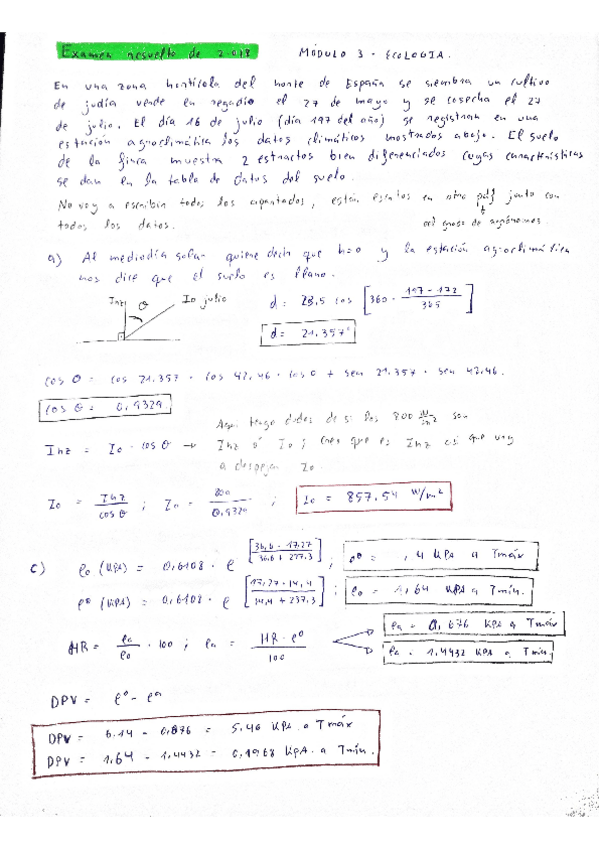 Examen resuelto de 2.018 MÓDULO 3 - ECOLOGIA.
En una zona hortícola del norte de España se siembra un cultivo
de judía verde en regadío el 27 de mayo y se cosecha el 27
de julio. El día 16 de julio (día 197 del año) se registran en una
estación agroclimática los datos climáticos mostrados abajo. El suelo
de la finca muestra 2 estractos bien diferenciados cuyas características
se dan en la tabla de datos del suelo.
No voy a escribir todos los apartados, están escritos en otro pdf junto con
todos los datos.
del grupo de agrónomos.
a) Al mediodía solar quiere decir que h=0 y la estación agroclimática
nos dice que el suelo es llano.
Ihz θ Io julio
d = 23,5 cos [360 · (197 - 172)/365]
d = 21.357°
cos θ = cos 21.357 · cos 42.46 · cos 0 + sen 21.357 · sen 42.46.
cos θ = 0,9329
Aquí tengo dudas de si los 800 W/m² son
Ihz = Io · cos θ → Ihz ó Io; creo que es Ihz así que voy
a despejar Io.
Io = Ihz/cos θ ; Io = 800/0,9329 ; Io = 857.54 W/m²
c) eo (KPA) = 0,6108 · e [36,6 · 17.27/36.6 + 237.3] ; eº = , 4 KPA a Tmáx
eº (KPA) = 0,6108 · e [17,27 · 14,4/14,4 + 237,3] ; eo = 1,64 KPA a Tmín.
HR = ea/eo · 100 ; ea = HR · eº/100
ea = 0,676 KPA a Tmáx
ea = 1.4432 KPA a Tmín
DPV = eº - ea
DPV = 6.14 - 0,876 = 5.46 KPA a Tmáx
DPV = 1.64 - 1.4432 = 0,1968 KPA a Tmín.